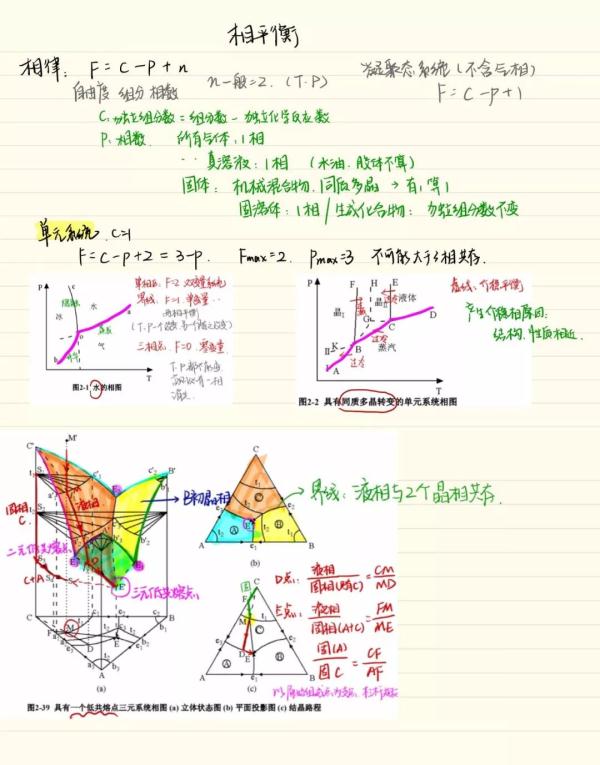 相平衡
相律: F = C - P + n
n一般=2. (T.P)
凝聚态系统(不含气相)
F = C - P + 1
自由度 组分 相数
C: 独立组分数 = 组分数 - 独立化学反应数
P: 相数. 所有气体: 1相
真溶液: 1相 (水油.胶体不算)
固体: 机械混合物.同质多晶 → 有1算1
固溶体: 1相 / 生成化合物: 独立组分数不变
单元系统. C=1
F = C-P+2 = 3-P. Fmax=2. Pmax=3 不可能大于3相共存.
P
c
水
冰
a
O
气
b
T
单相区: F=2 双变量系统
界线: F=1 单变量
两相平衡
三相点: F=0. 零变量.
图2-1 水的相图
P
F H E
晶I
晶II
液体
G
D
K
B
C
过冷
过热
蒸汽
A
T
虚线: 介稳平衡
产生介稳相原因:
结构.性质相近.
图2-2 具有同质多晶转变的单元系统相图
C'
M'
B'
液相
固相
C.
二元低共熔点
三元低共熔点
C+A
C
M
D
B
A
(a)
B初晶相
C
A
B
(b)
界线: 液相与2个晶相共存.
C
A
B
(c)
D点: 液相/固相(C) = CM/MD
E点: 液相/固相(A+C) = FM/ME
固(A)/固C = CF/AF
图2-39 具有一个低共熔点三元系统相图 (a) 立体状态图 (b) 平面投影图 (c) 结晶路程